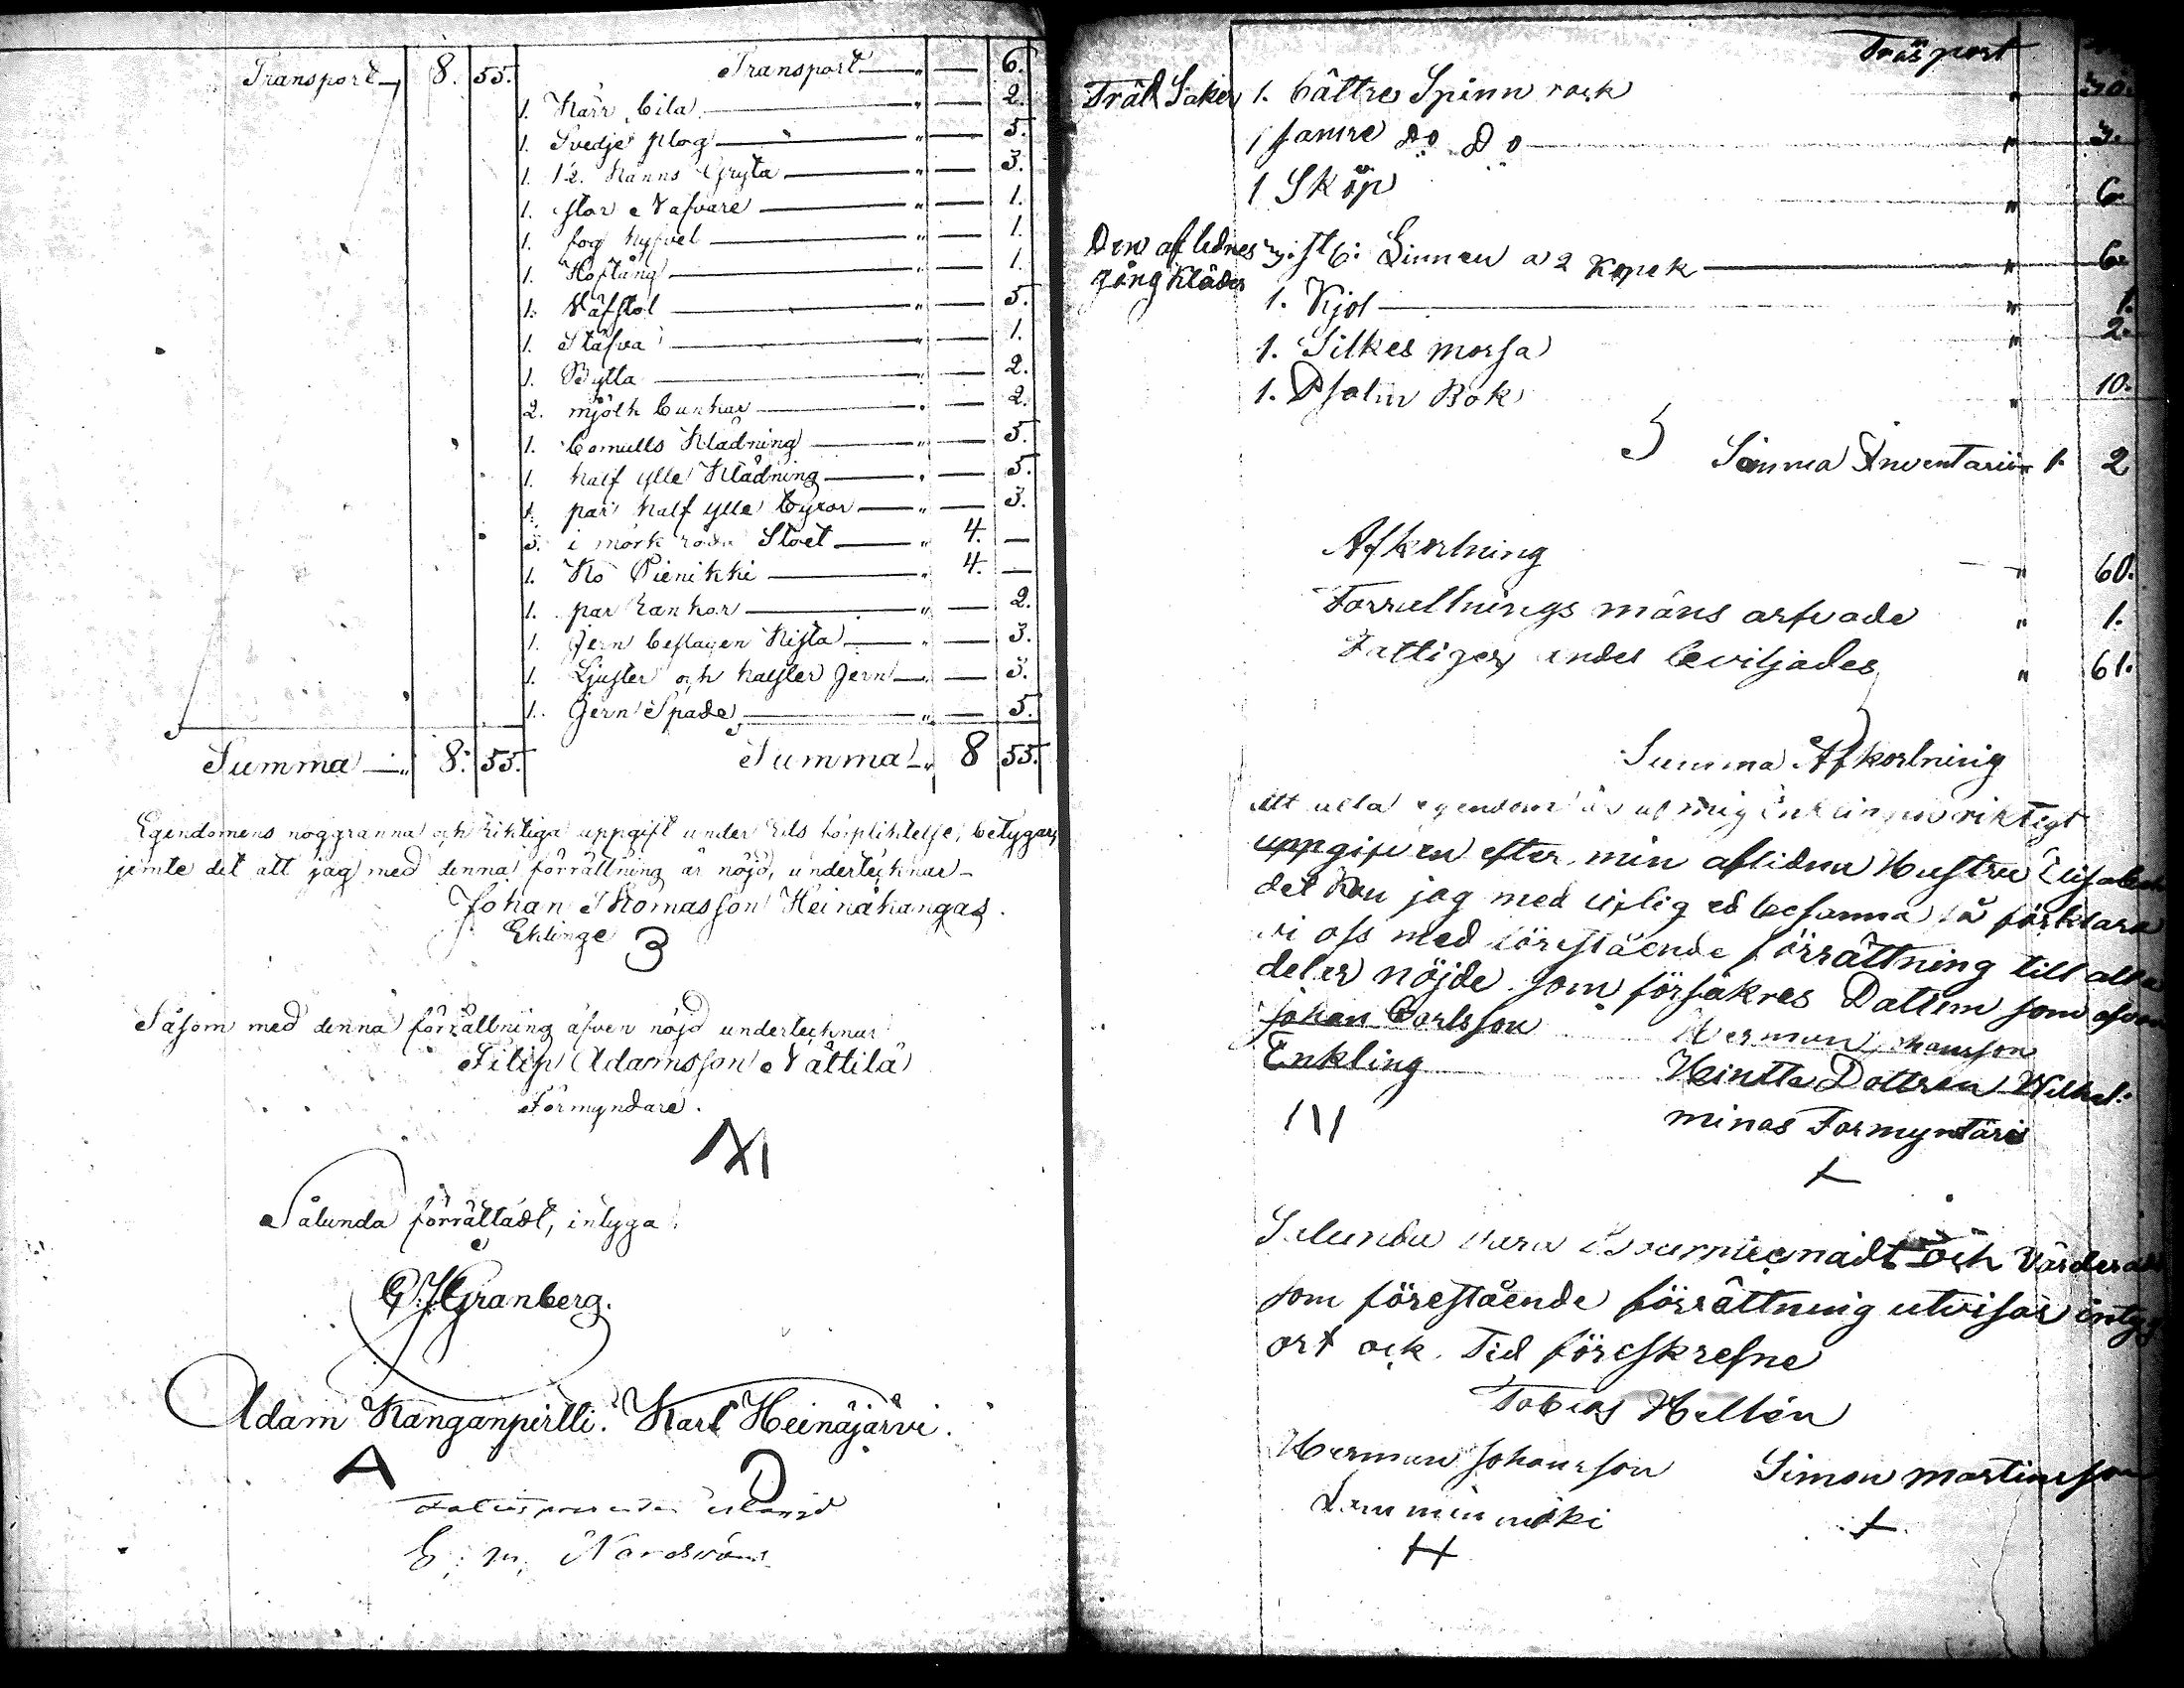 Transport 8. 55. Transport " — 6.
1. Kärr bila " — 2.
1. Svedje plog " — 5.
1. 12. Kanns Gryta " — 3.
1. stor Nafvare " — 1.
1. fog hyfvel " — 1.
1. Hoftång " — 1.
1. Väfstol " — 5.
1. Stäfva " — 1.
1. Bytta " — 2.
2. mjölk bunkar " — 2.
1. bomulls Klädning " — 5.
1. half ylle Klädning " — 5.
1. par half ylle byxor " — 3.
i mörk röda Stoet " 4. —
1. Ko Pienikki " 4. —
1. par rankor " — 2.
1. Jern beslagen Kista " — 3.
1. Ljuster och halster Jern " — 3.
1. Jern Spade " — 5.
Summa 8. 55. Summa 8 55.
Egendomens noggranna och riktiga uppgift under Eds förpliktelse, betygas,
jemte det att jag med denna förrättning är nöjd, undertecknar
Johan Thomasson Heinäkangas.
Enklinge
Såsom med denna förrättning äfven nöjd undertecknar
Filip Adamsson Nättilä
Förmyndare.
Sålunda förrättadt, intyga.
Granberg.
Adam Kanganpirtti. Karl Heinäjärvi.
A D
E. m. Nordström
Träsport
Träd Saker 1. bättre Spinn rock " 30.
1 samre do do " 3.
1 Skåp " 6.
Den aflednes 3. st b: Linnen a 2 Kopek " 6.
gångkläder 1. Kjol " 1.
1. Silkes mossa " 2.
1. Psalm Bok " 10.
Summa Inventarium 1. 2
Afkortning " 60.
Forrettnings mäns arfvode " 1.
Fattigas andel beviljades " 61.
Summa Afkortning
Att alla egendom är af mig Enklingen riktigt
uppgifven efter min aflidna Hustru Elisabeth
det kan jag med liflig ed besanna så förklara
vi oss med förestående förrättning till alla
deler nöjde som försäkres Datum som ofvan
Johan Carlsson Herman Johansson
Enkling Heintta Dottren Wilhel:
minas Formyntäre
Sålunda vara och Värderadt
som förestående förrättning utvisar intyg
ort ock Tid föreskrefne
Tobias Hellén
Herman Johansson Simon martinsson
Lamminmäki